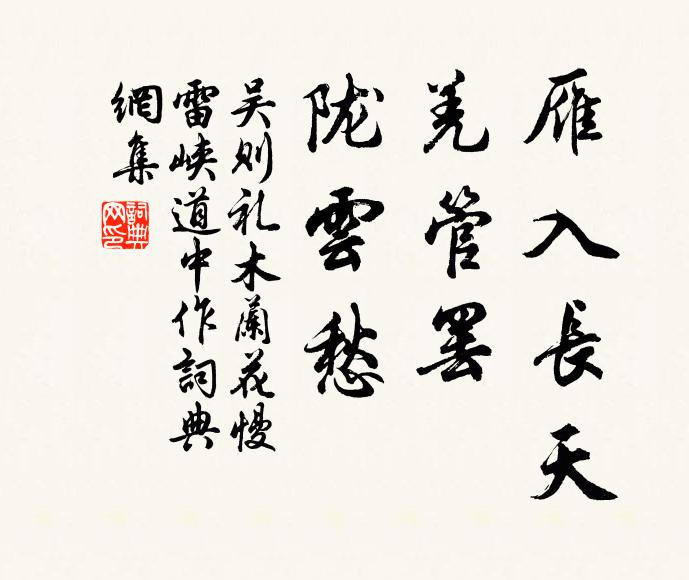 雁入長天
羌管罢
陇雲愁
吴则礼木蘭花慢
雷峡道中作詞典
網集
詞典网印